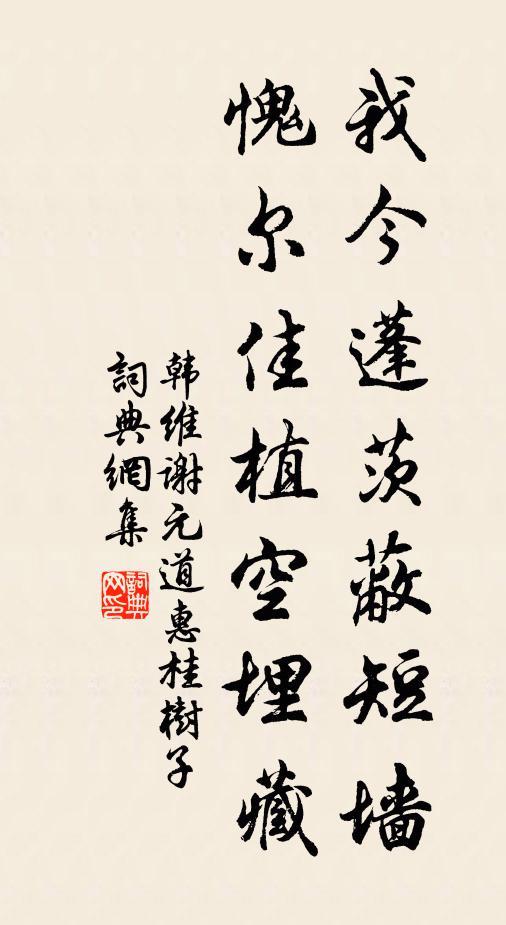 我今蓬茨蔽短墙
愧尔佳植空埋藏
韩维谢元道惠桂樹子
詞典網集
詞典
网印